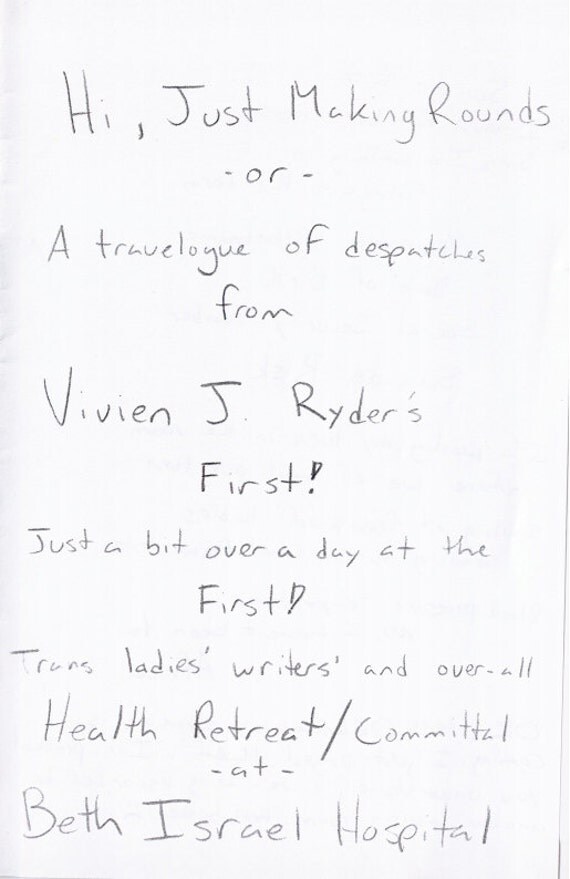 Hi, Just Making Rounds
- or -
A travelogue of despatches
from
Vivien J. Ryder's
First!
Just a bit over a day at the
First!
Trans ladies' writers' and over-all
Health Retreat/Committal
- at -
Beth Israel Hospital